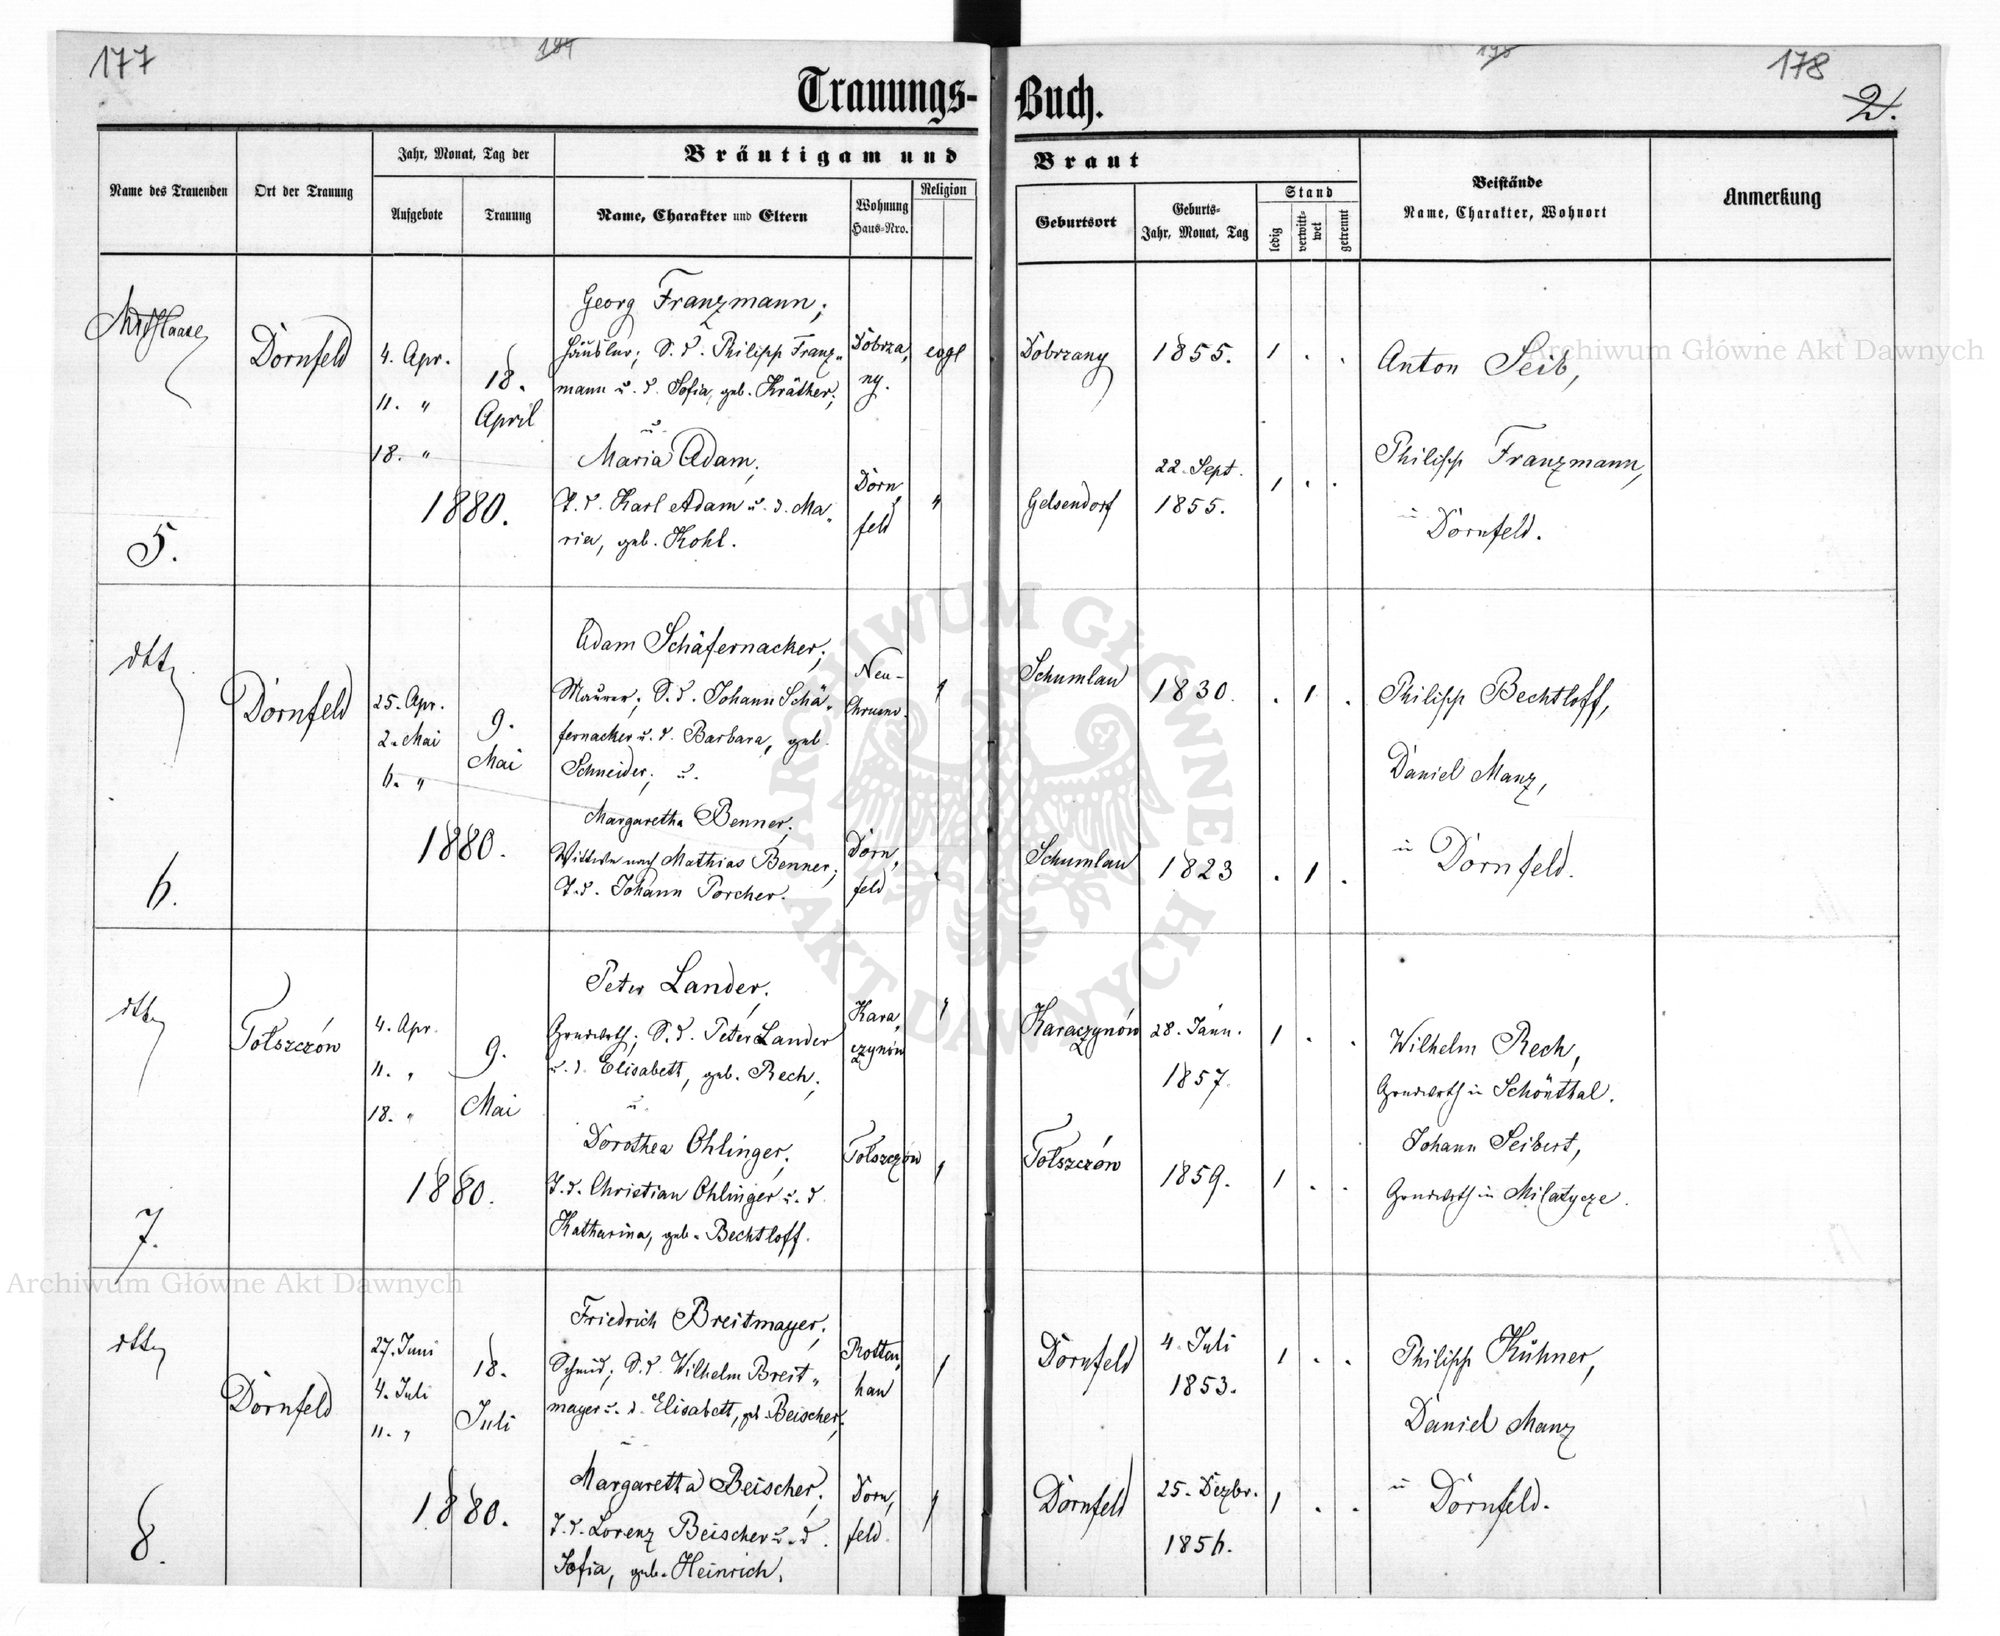 177
178
2.
Trauungs-Buch.
Name des Trauenden
Ort der Trauung
Jahr, Monat, Tag der
Aufgebote
Trauung
Bräutigam und Braut
Name, Charakter und Eltern
Wohnung
Haus-Nro.
Religion
Geburtsort
Geburts-
Jahr, Monat, Tag
Stand
ledig
verwitt-
wet
getrennt
Beistände
Name, Charakter, Wohnort
Anmerkung
5.
Dornfeld
4. Apr.
11. "
18. "
18.
April
1880.
Georg Franzmann;
Häusler; S. d. Philipp Franz-
mann u. d. Sofia, geb. Kräther;
u.
Maria Adam,
T. d. Karl Adam u. d. Ma-
ria, geb. Kohl.
Dobrza,
ny.
evgl
Dorn,
feld
"
Dobrzany
1855.
1 . .
Gelsendorf
22. Sept.
1855.
1 . .
Anton Seib,
Philipp Franzmann,
in Dornfeld.
dtto
6.
Dornfeld
25. Apr.
2. Mai
6. "
9.
Mai
1880.
Adam Schäfernacker;
Maurer; S. d. Johann Schä-
fernacker u. d. Barbara, geb.
Schneider; u.
Margaretha Benner;
Wittwe nach Mathias Benner;
T. d. Johann Porcher.
Neu-
Chrusno.
Dorn,
feld
Schumlau
1830.
. 1 .
Schumlau
1823
. 1 .
Philipp Bechtloff,
Daniel Manz,
in Dornfeld.
dtto
7.
Tołszczów
4. Apr.
11. "
18. "
9.
Mai
1880.
Peter Lander;
Grundwirth; S. d. Peter Lander
u. d. Elisabeth, geb. Rech;
u.
Dorothea Ohlinger;
T. d. Christian Ohlinger u. d.
Katharina, geb. Bechtloff.
Kara,
czynów
Tołszczów
Karaczynów
28. Jänn.
1857.
1 . .
Tołszczów
1859.
1 . .
Wilhelm Rech,
Grundwirth in Schönthal.
Johann Seibert,
Grundwirth in Miłatycze.
dtto
8.
Dornfeld
27. Juni
4. Juli
11. "
18.
Juli
1880.
Friedrich Breitmayer;
Schmid; S. d. Wilhelm Breit-
mayer u. d. Elisabeth, geb. Beischer;
u.
Margaretha Beischer;
T. d. Lorenz Beischer u. d.
Sofia, geb. Heinrich.
Rotten,
han
Dorn,
feld.
Dornfeld
4. Juli
1853.
1 . .
Dornfeld
25. Dezbr.
1856.
1 . .
Philipp Kühner,
Daniel Manz
in Dornfeld.
Archiwum Główne Akt Dawnych
Archiwum Główne Akt Dawnych
ARCHIWUM GŁÓWNE AKT DAWNYCH